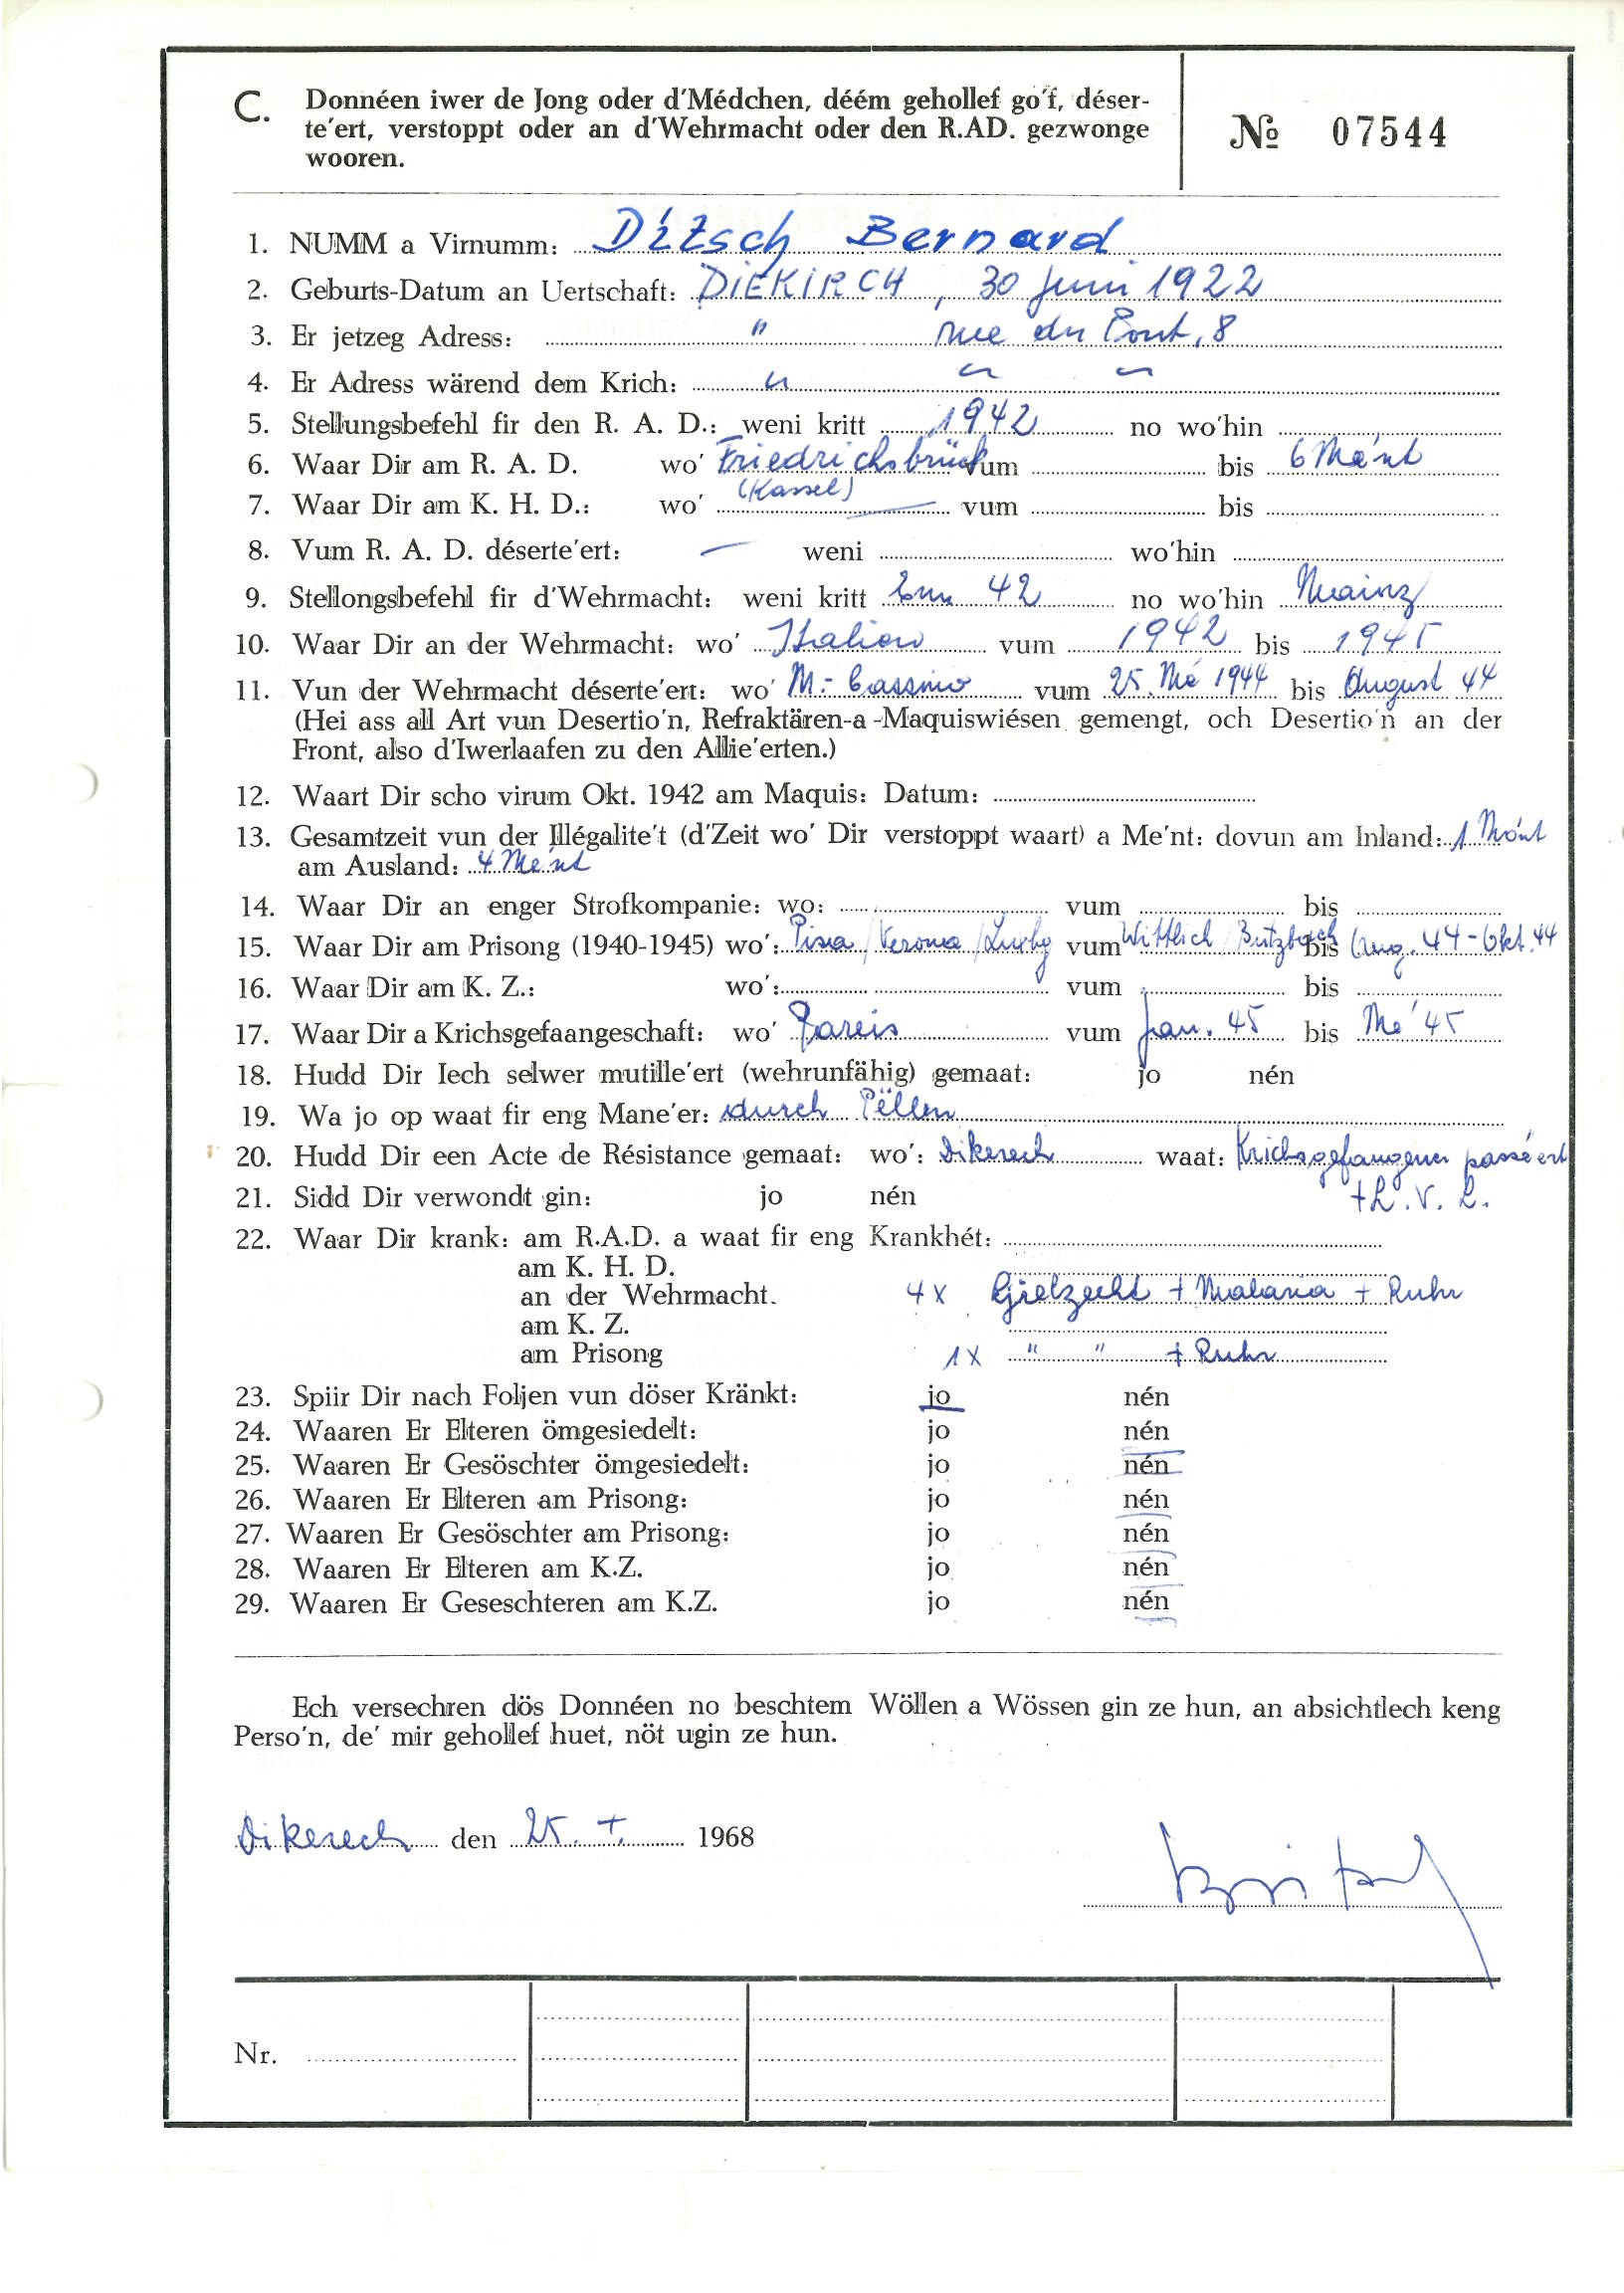 C. Donnéen iwer de Jong oder d'Médchen, déém gehollef go'f, déser-
te'ert, verstoppt oder an d'Wehrmacht oder den R.AD. gezwonge
wooren.
№ 07544
1. NUMM a Virnumm: Ditsch Bernard
2. Geburts-Datum an Uertschaft: DIEKIRCH, 30 Juni 1922
3. Er jetzeg Adress: " rue du Pont, 8
4. Er Adress wärend dem Krich: " " "
5. Stellungsbefehl fir den R. A. D.: weni kritt 1942 no wo'hin
6. Waar Dir am R. A. D. wo' Friedrichsbrück vum bis 6 Mé'nt
(Kassel)
7. Waar Dir am K. H. D.: wo' — vum bis
8. Vum R. A. D. déserte'ert: — weni wo'hin
9. Stellongsbefehl fir d'Wehrmacht: weni kritt Enn 42 no wo'hin Mainz
10. Waar Dir an der Wehrmacht: wo' Italien vum 1942 bis 1945
11. Vun der Wehrmacht déserte'ert: wo' M.-Cassino vum 25. Mé 1944 bis August 44
(Hei ass all Art vun Desertio'n, Refraktären-a-Maquiswiésen gemengt, och Desertio'n an der
Front, also d'Iwerlaafen zu den Allie'erten.)
12. Waart Dir scho virum Okt. 1942 am Maquis: Datum:
13. Gesamtzeit vun der Illégalite't (d'Zeit wo' Dir verstoppt waart) a Me'nt: dovun am Inland: 1 Mo'nt
am Ausland: 4 Me'nt
14. Waar Dir an enger Strofkompanie: wo: vum bis
15. Waar Dir am Prisong (1940-1945) wo': Pisa / Verona / Luxbg vum Wittlich / Butzbach bis Aug. 44 - Okt. 44
16. Waar Dir am K. Z.: wo': vum bis
17. Waar Dir a Krichsgefaangeschaft: wo' Pareis vum Jan. 45 bis Mé' 45
18. Hudd Dir Iech selwer mutille'ert (wehrunfähig) gemaat: jo nén
19. Wa jo op waat fir eng Mane'er: durch Pëllen
20. Hudd Dir een Acte de Résistance gemaat: wo': Dikerech waat: Krichsgefangener passéert
+ L. V. L.
21. Sidd Dir verwondt gin: jo nén
22. Waar Dir krank: am R.A.D. a waat fir eng Krankhét:
am K. H. D.
an der Wehrmacht. 4 x Gielzecht + Malaria + Ruhr
am K. Z.
am Prisong 1 x " " + Ruhr
23. Spiir Dir nach Foljen vun döser Kränkt: jo nén
24. Waaren Er Elteren ömgesiedelt: jo nén
25. Waaren Er Gesöschter ömgesiedelt: jo nén
26. Waaren Er Elteren am Prisong: jo nén
27. Waaren Er Gesöschter am Prisong: jo nén
28. Waaren Er Elteren am K.Z. jo nén
29. Waaren Er Geseschteren am K.Z. jo nén
Ech versechren dös Donnéen no beschtem Wöllen a Wössen gin ze hun, an absichtlech keng
Perso'n, de' mir gehollef huet, nöt ugin ze hun.
Dikerech den 25. 1968
Nr.